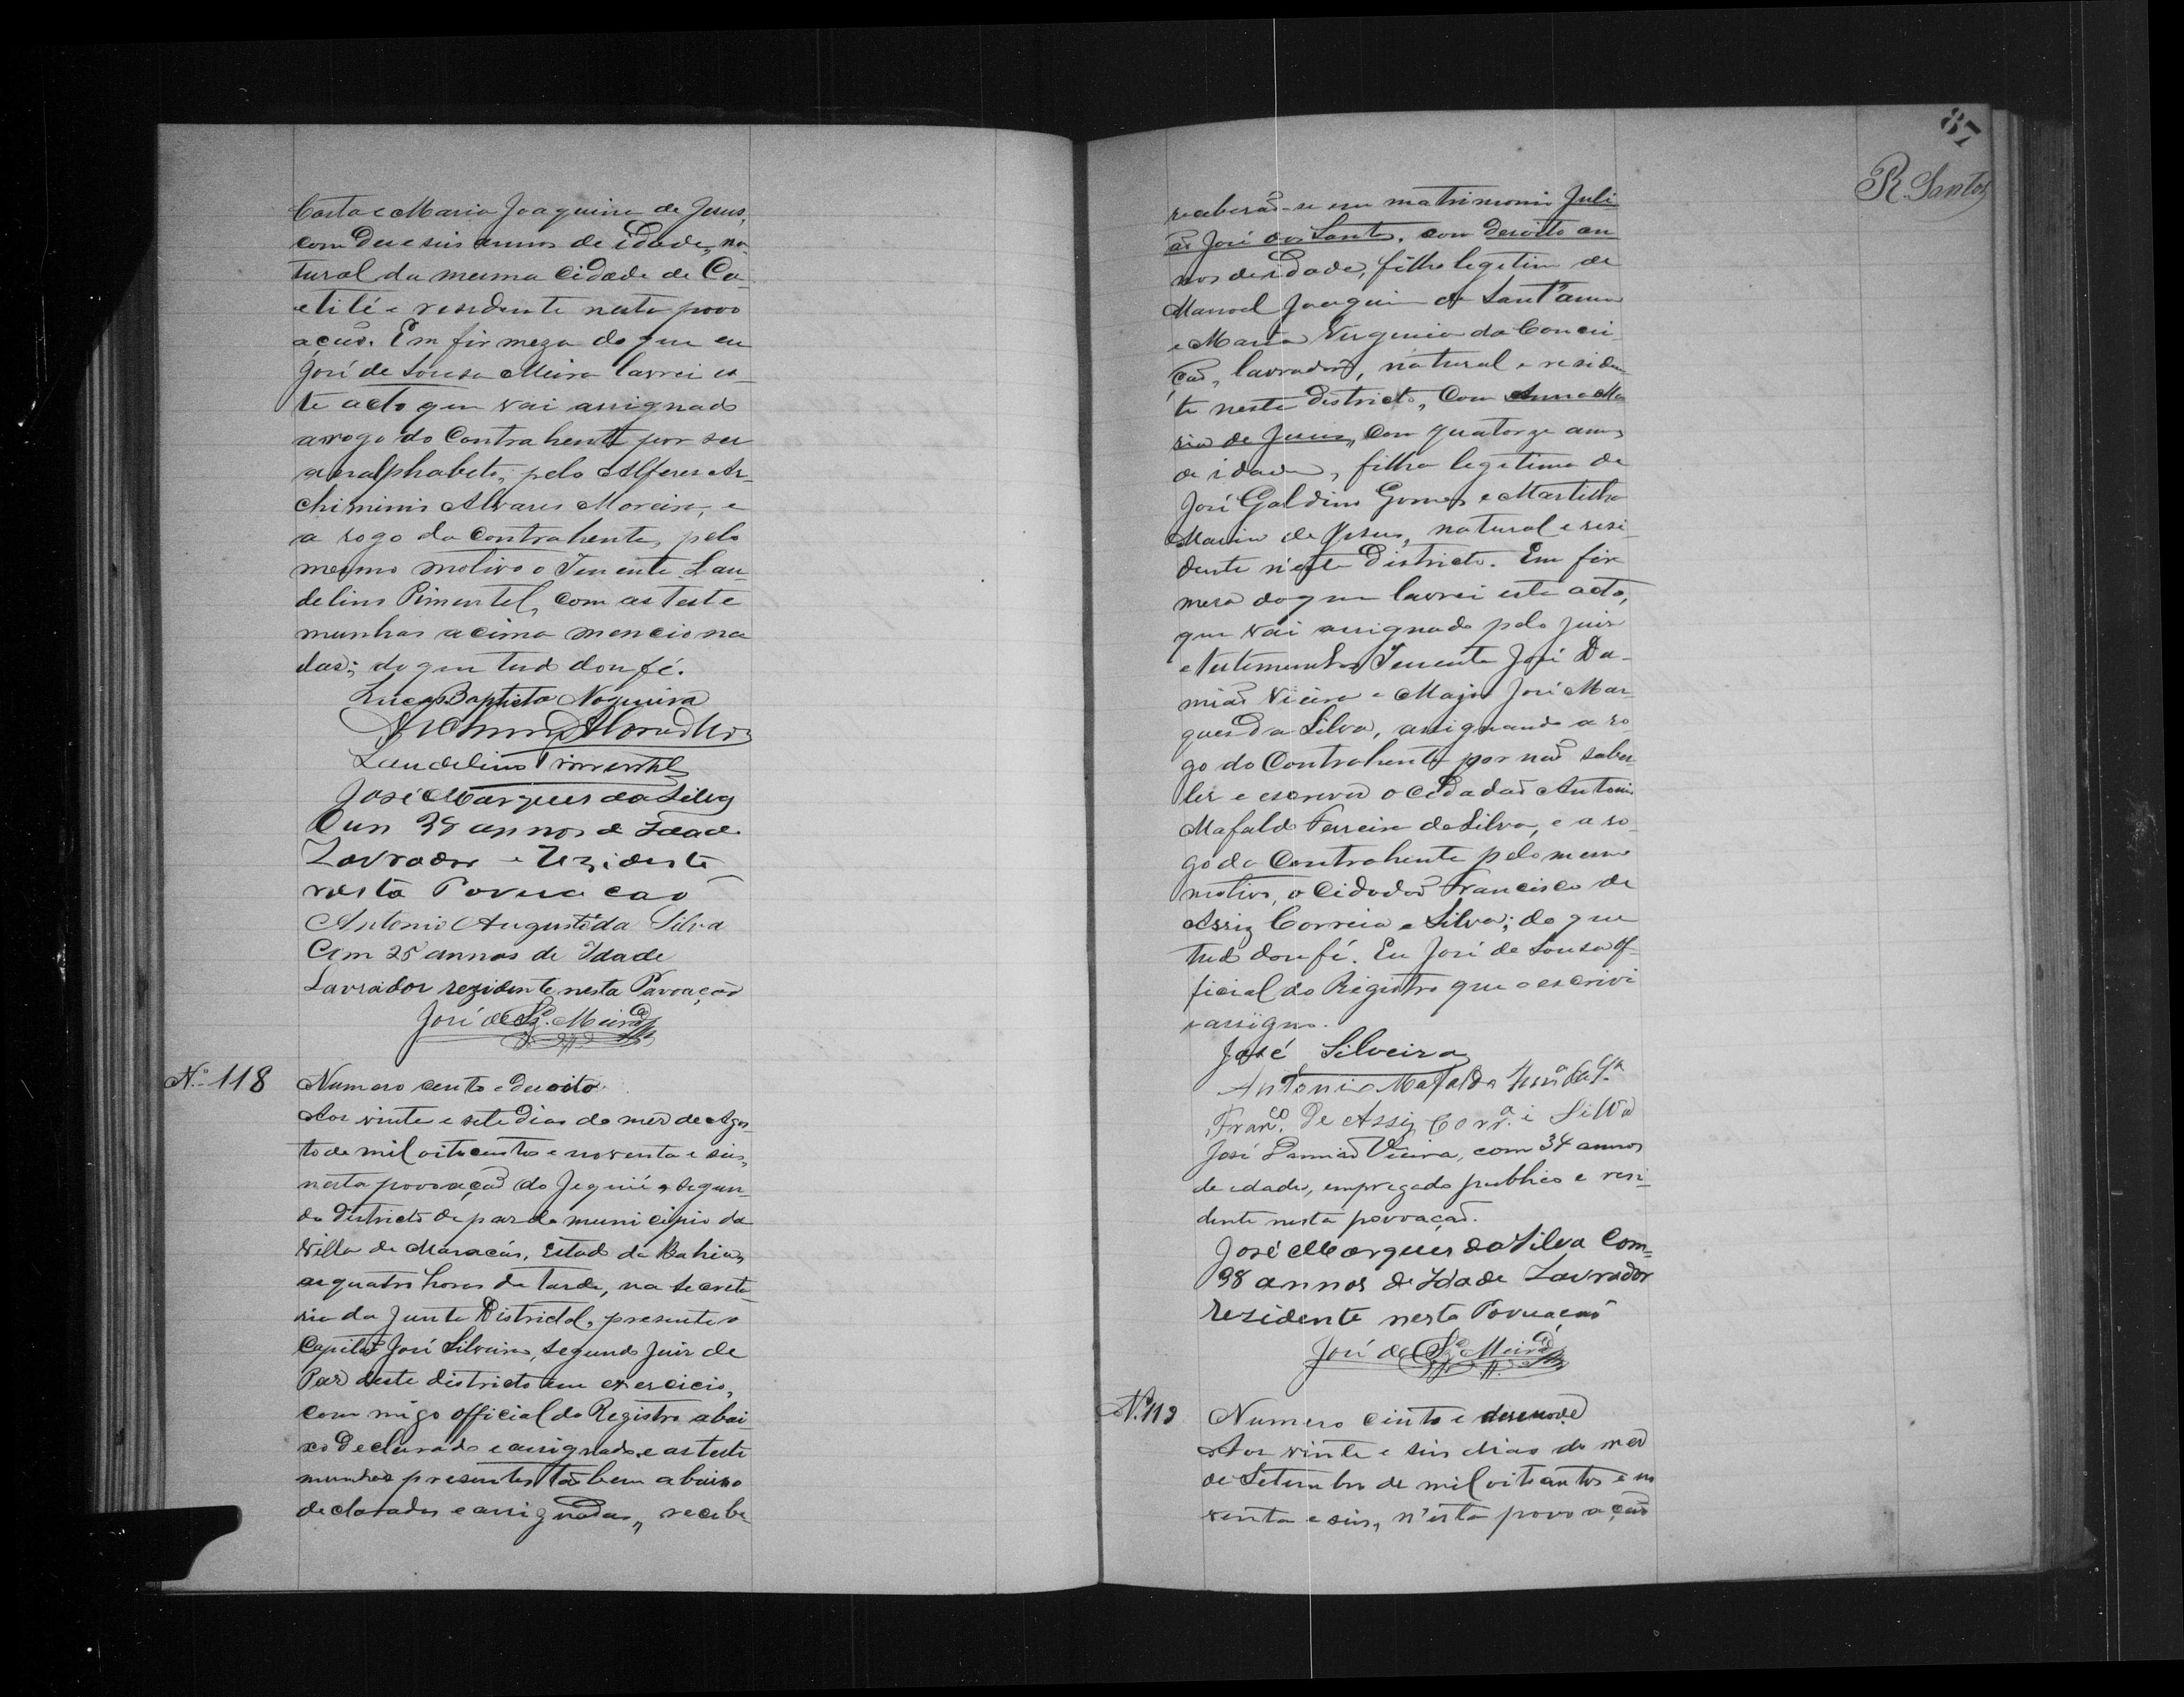 Costa e Maria Joaquina de Jesus,
com deseseis annos de idade, na-
tural da mesma Cidade de Ca-
etité e residente nesta povo
ação. Em firmeza do que eu
José de Sousa Meira lavrei es-
te acto que vai assignado
a rogo do Contrahente por ser
analphabeto, pelo Alferes Ar-
chiminio Alvares Moreira, e
a rogo da Contrahente, pelo
mesmo motivo o Tenente Lau-
delino Pimentel, com as teste
munhas acima menciona
das; do que tudo dou fé.
Lucas Baptista Nogueira
Laudelino Pimentel
José Marques da Silva
Cun 38 annos de Idade
Lavrador e Rezidente
nesta Povuacão
Antonio Augusto da Silva
Com 25 annos de Idade
Lavrador rezidente nesta Povoação
José de Sz.ª Meira
N.º 118
Numero cento e desoito.
Aos vinte e sete dias do mes de Agos-
to de mil oitocentos e noventa e seis,
nesta povoação do Jequié, segun-
do districto de paz do municipio da
Villa de Maracás, Estado da Bahia,
as quatro horas da tarde, na secreta-
ria da Junta Districtal, presente o
Capitão José Silveira, segundo Juiz de
Paz deste districto em exercicio,
com migo official do Registro abai
xo declarado e assignado, e as teste
munhas presentes tãobem abaixo
declaradas e assignadas, recebe-
87
R. Santos
receberão-se em matrimonio Juli-
ão José dos Santos, com desoito an
nos de idade, filho legitimo de
Manoel Joaquim de Sant'anna
e Maria Virginia da Concei-
ção, lavrador, natural e residen
te neste districto, Com Anna Ma
ria de Jesus, Com quatorze annos
de idade, filha legitima de
José Galdino Gomes e Martilha
Maria de Jesus, natural e resi-
dente n'este Districto. Em fir
mesa do que lavrei este acto,
que vai assignado pelo Juiz
e testemunhas Tenente José Da-
mião Vieira e Major José Mar-
ques da Silva, assignando a ro-
go do Contrahente por não saber
ler e escrever o Cidadão Antonio
Mafaldo Ferreira da Silva, e a ro-
go da Contrahente pelo mesmo
motivo, o Cidadão Francisco de
Assiz Correia e Silva; do que
tudo dou fé. Eu José de Sousa of-
ficial do Registro que o escrivi
e assigno.
José Silveira
Antonio Mafaldo Ferrª da Sª
Franco. de Assiz Corrª. i Silva
José Damião Vieira, com 34 annos
de edade, empregado publico e resi-
dente nesta povoação.
José Marques da Silva Com-
38 annos de Idade Lavrador
rezidente nesta Povuacão
José de Sz.ª Meira
N.º 119
Numero cento e desenove
Aos vinte e seis dias do mes
de Setembro de mil oitocentos e no
venta e seis, n'esta povoação